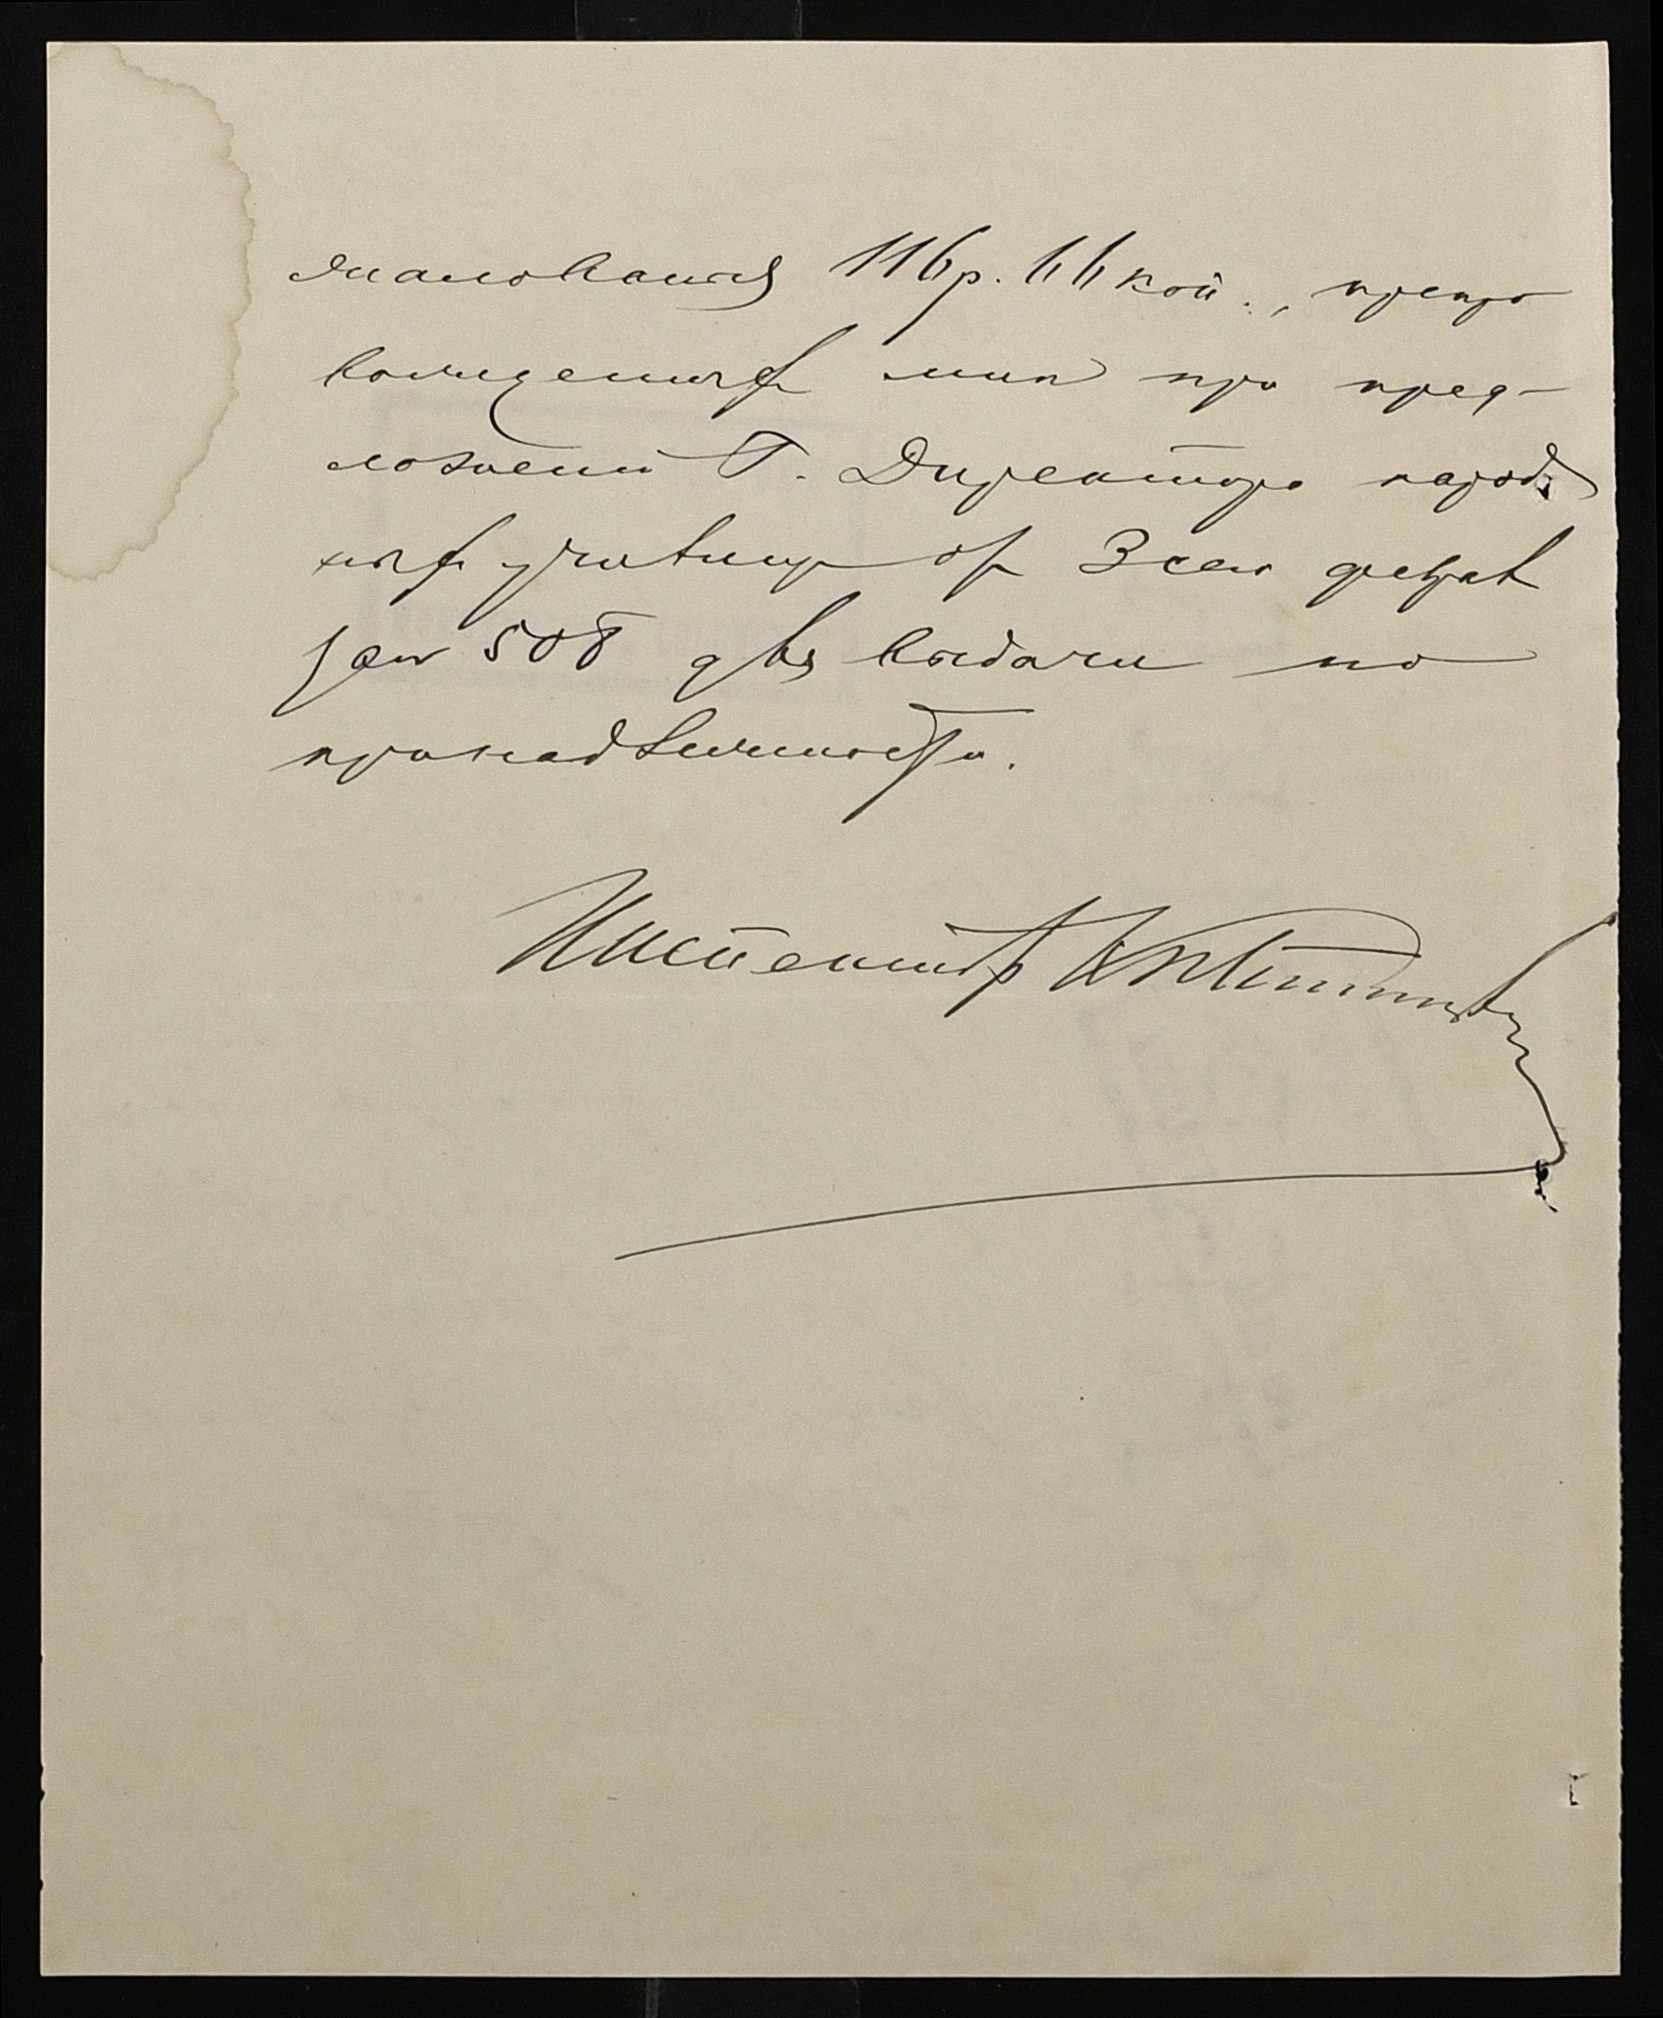 жалованья 116 р. 66 коп., препро
вожденныхъ мнѣ при пред-
ложеніи Г. Директора народ
ныхъ училищъ отъ 3 сего февраля
за № 508 для выдачи по
принадлежности.
Инспекторъ